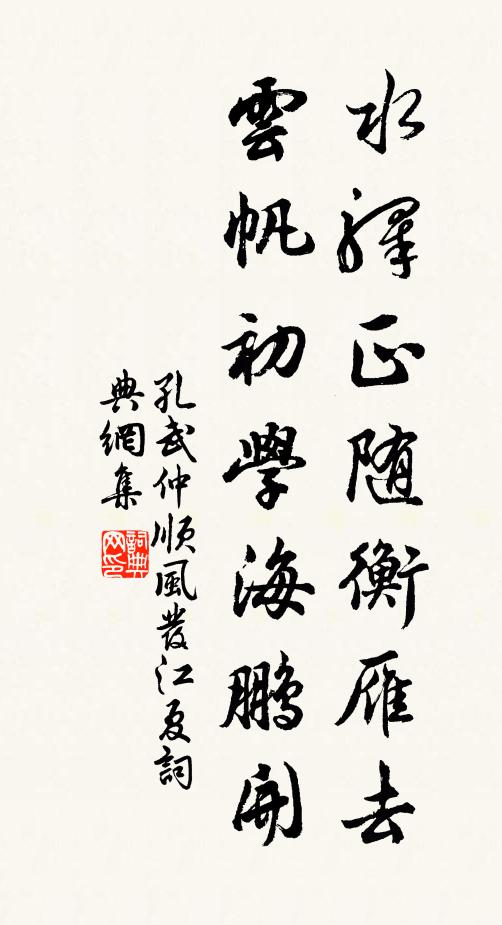 水驛正随衡雁去
雲帆初學海鵬開
孔武仲順風發江夏詞
典網集
詞典
网印